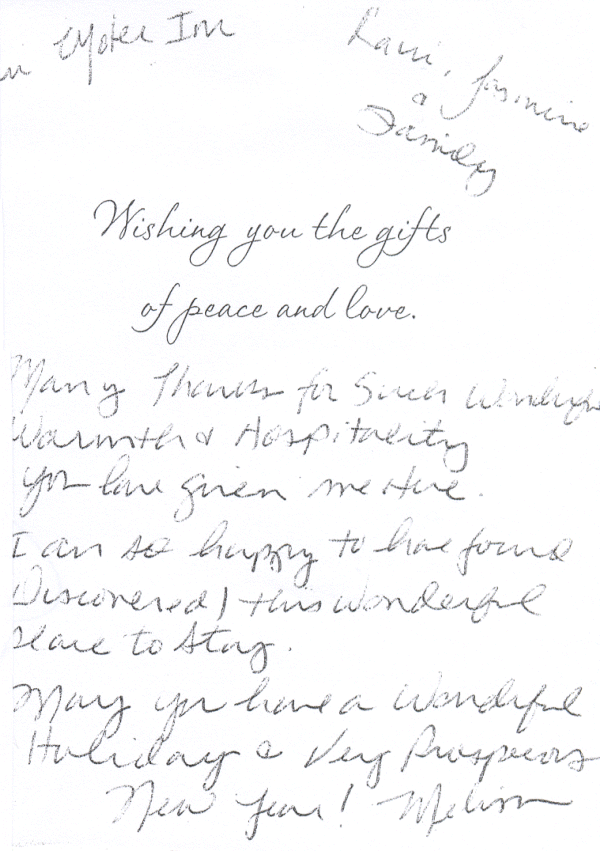 Inn
Ravi, Jasmine
&
Family
Wishing you the gifts
of peace and love.
Many Thanks for Such Wonderful
Warmth & Hospitality
you have given me Here.
I am so happy to have found
Discovered) this wonderful
place to stay.
May you have a Wonderful
Holiday & Very Prosperous
New Year! Melissa